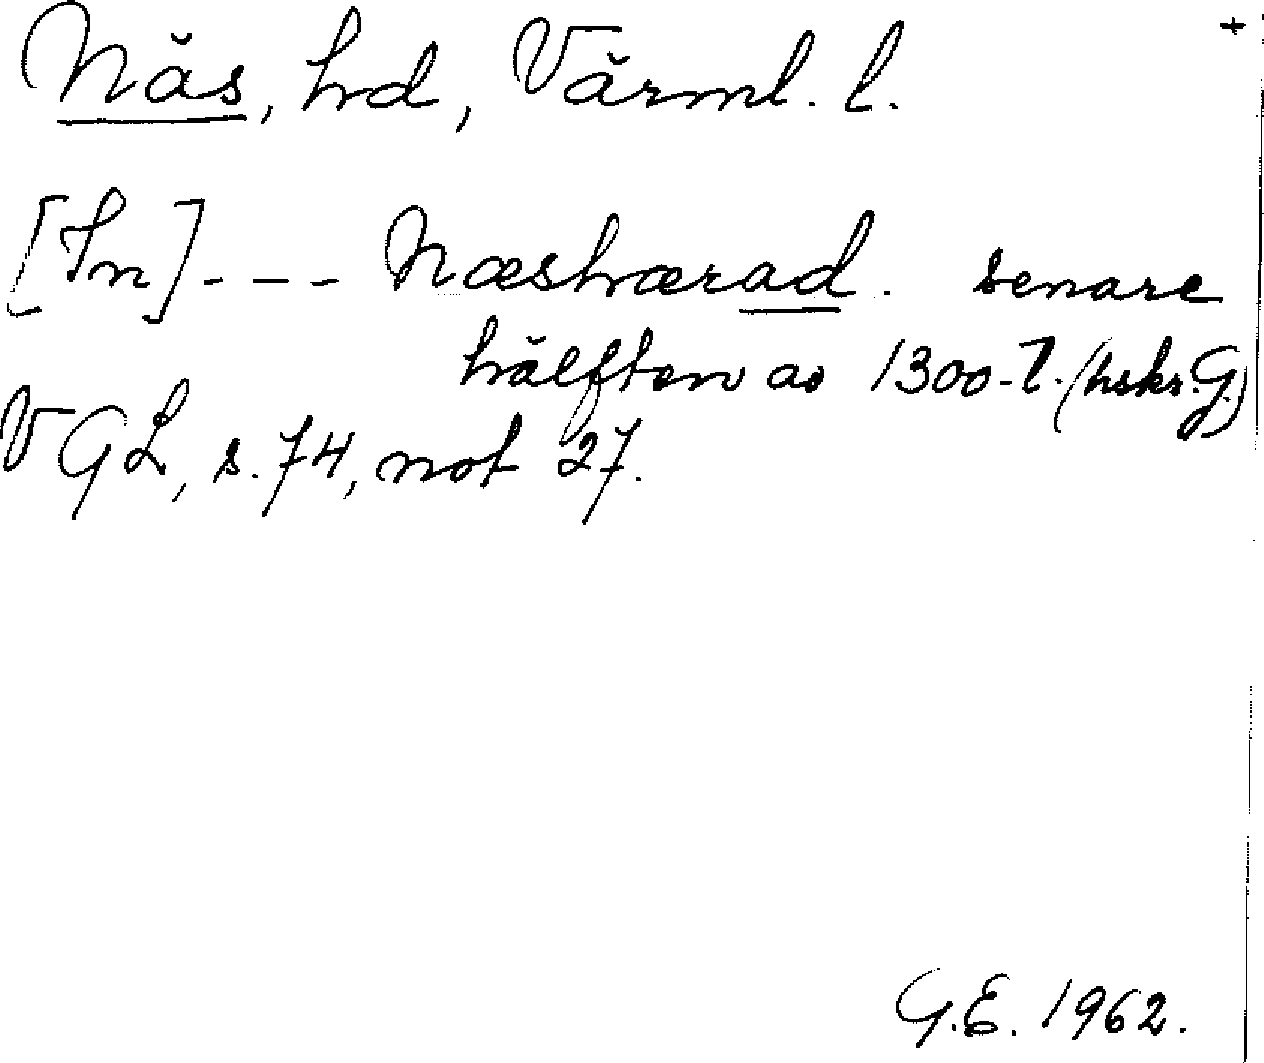 Näs, hd, Värml. l. +
[In] - - - Næshærad. senare
hälften av 1300-t. (hskr. G.)
VGL, s. 74, not 27.
G.E. 1962.